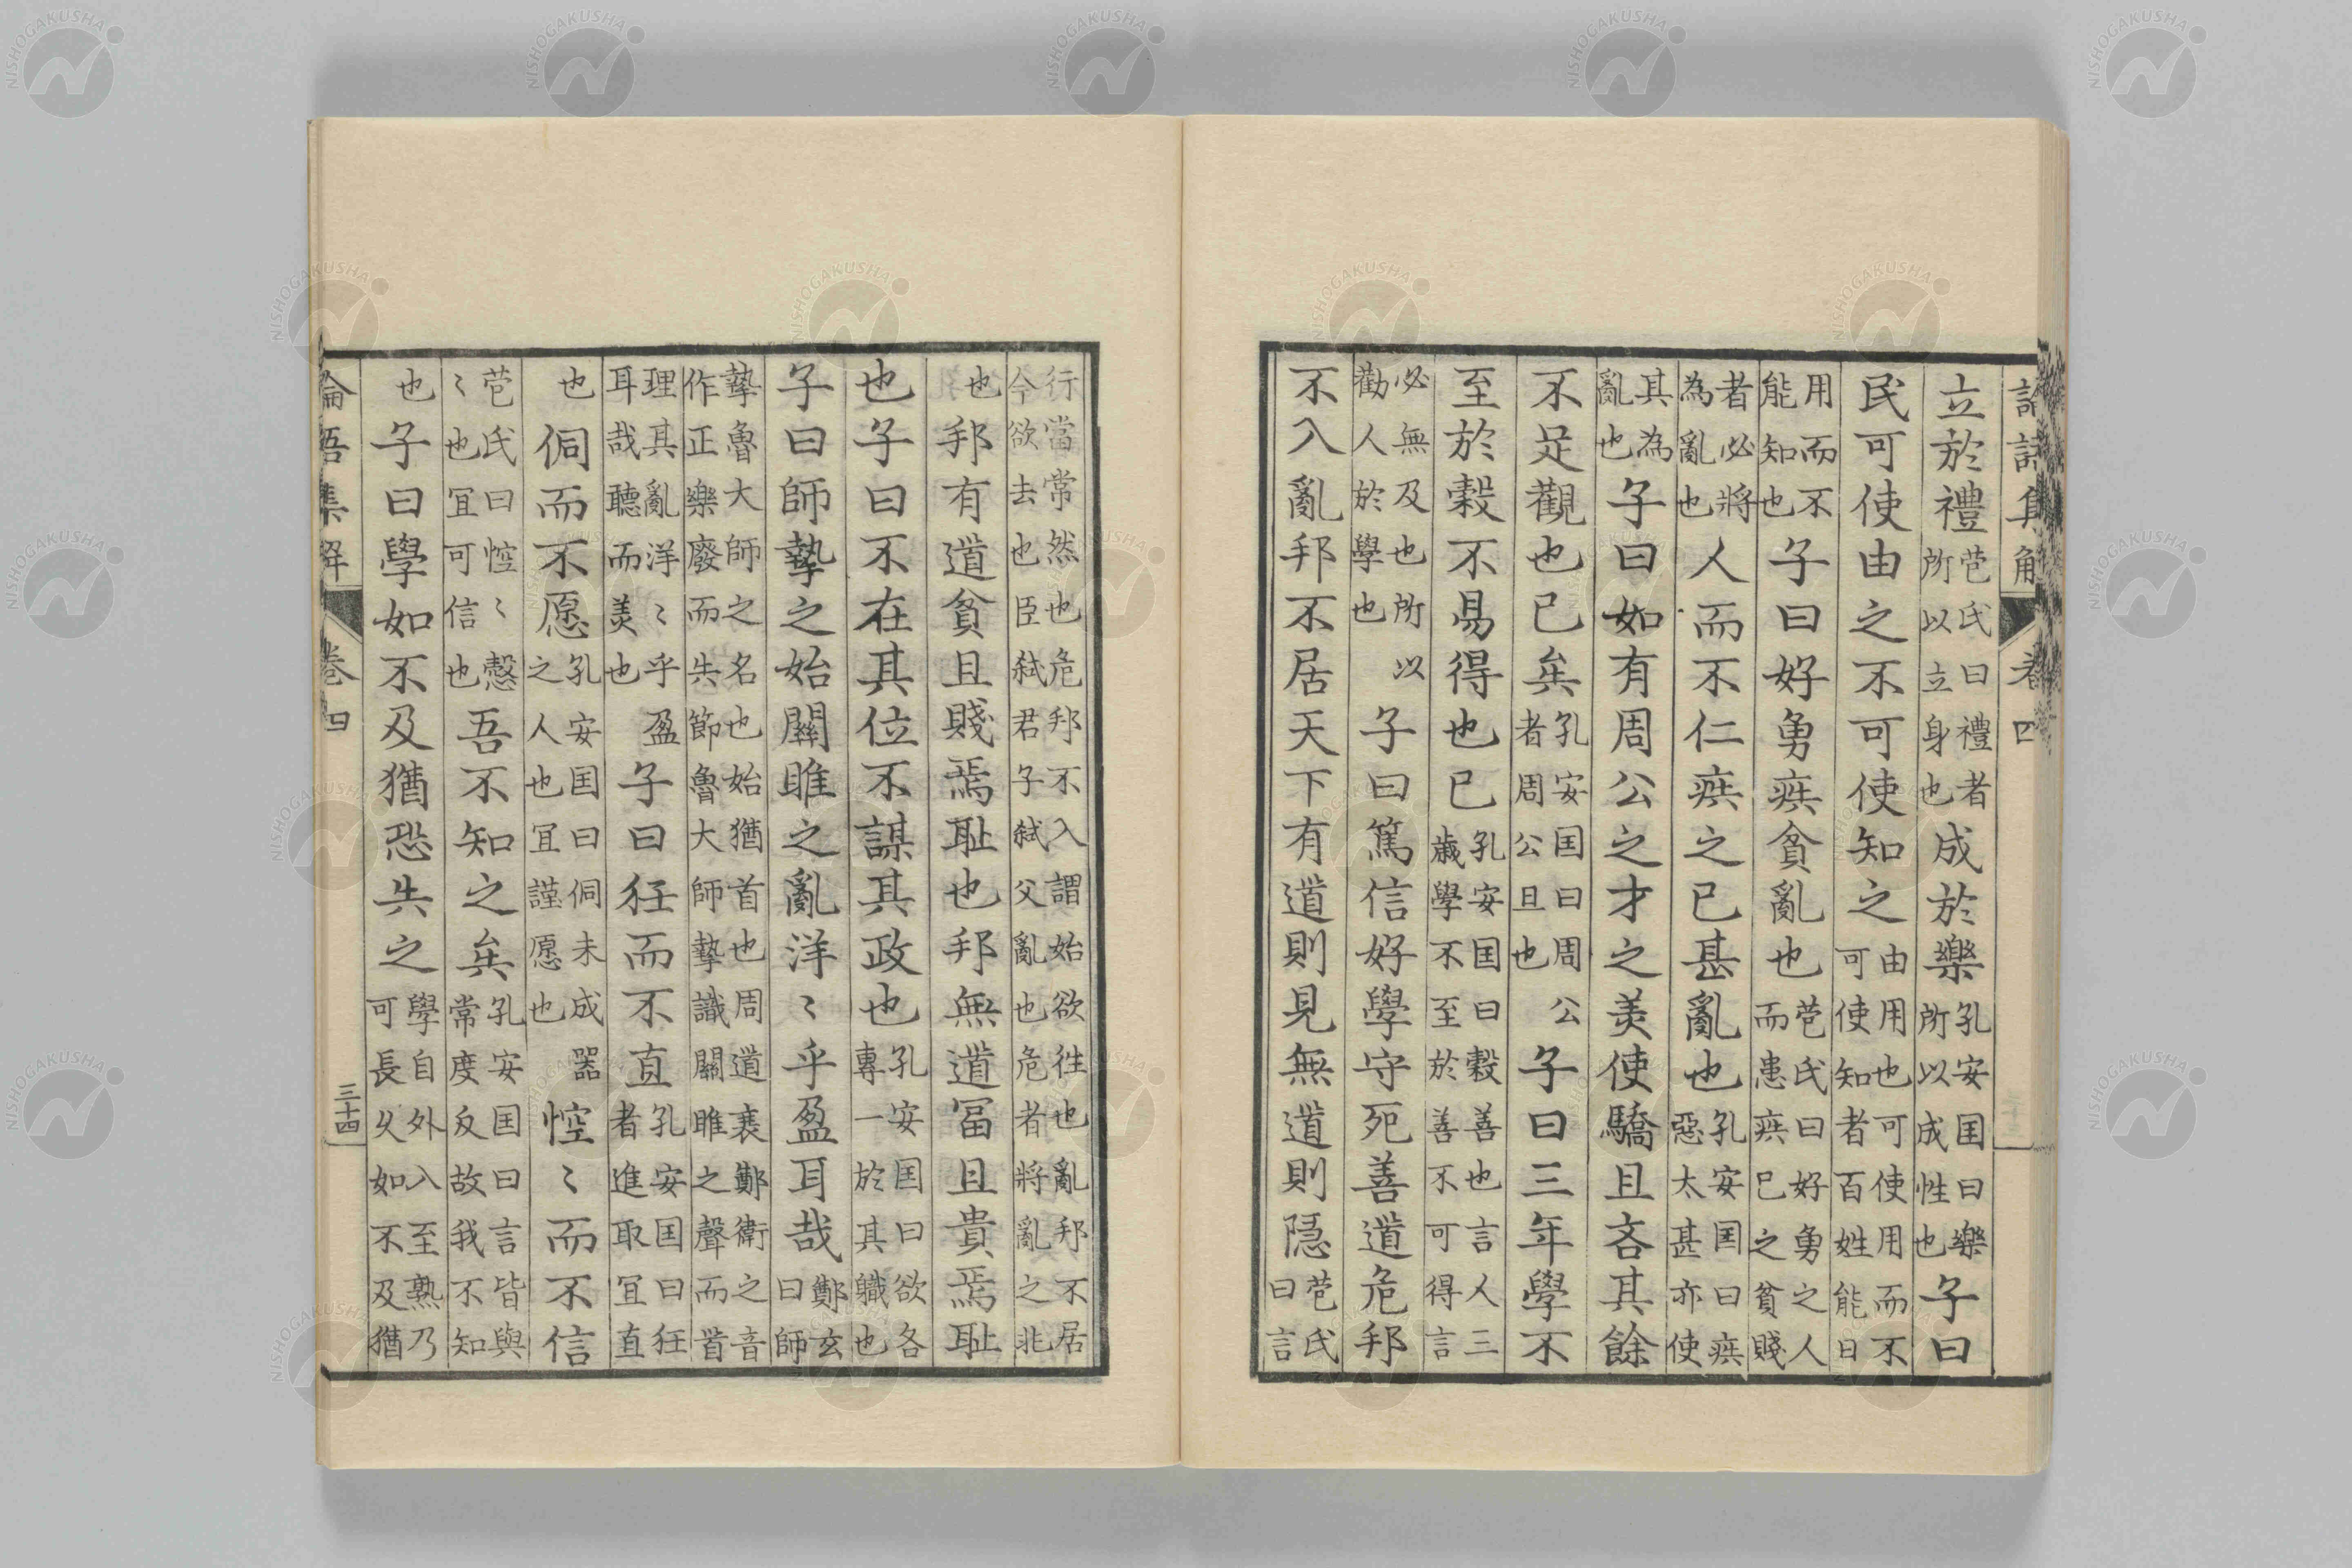 立於禮苞氏曰禮者所以立身也成於樂孔安国曰樂所以成性也子曰
民可使由之不可使知之由用也可使用而不可使知者百姓能日
用而不能知也子曰好勇疾貧亂也苞氏曰好勇之人而患疾己之貧賤
者必將為亂也人而不仁疾之已甚亂也孔安国曰疾惡太甚亦使
其為亂也子曰如有周公之才之美使驕且吝其餘
不足觀也已矣孔安国曰周公者周公旦也子曰三年學不
至於穀不易得也已孔安国曰穀善也言人三歳學不至於善不可得言
必無及也所以勸人於學也子曰篤信好學守死善道危邦
不入亂邦不居天下有道則見無道則隠苞氏曰言
行當常然也危邦不入謂始欲往也亂邦不居今欲去也臣弒君子弒父亂也危者將亂之兆
也邦有道貧且賤焉耻也邦無道冨且貴焉耻
也子曰不在其位不謀其政也孔安国曰欲各專一於其職也
子曰師摯之始關雎之亂洋〻乎盈耳哉鄭玄曰師
摯魯大師之名也始猶首也周道衰鄭衛之音作正樂廢而失節魯大師摯識關雎之聲而首
理其亂洋〻乎盈耳哉聽而美也子曰狂而不直孔安国曰狂者進取宜直
也侗而不愿孔安国曰侗未成器之人也宜謹愿也悾〻而不信
苞氏曰悾〻愨〻也宜可信也吾不知之矣孔安国曰言皆與常度反故我不知
也子曰學如不及猶恐失之學自外入至熟乃可長久如不及猶
論語集解 卷四 三十四